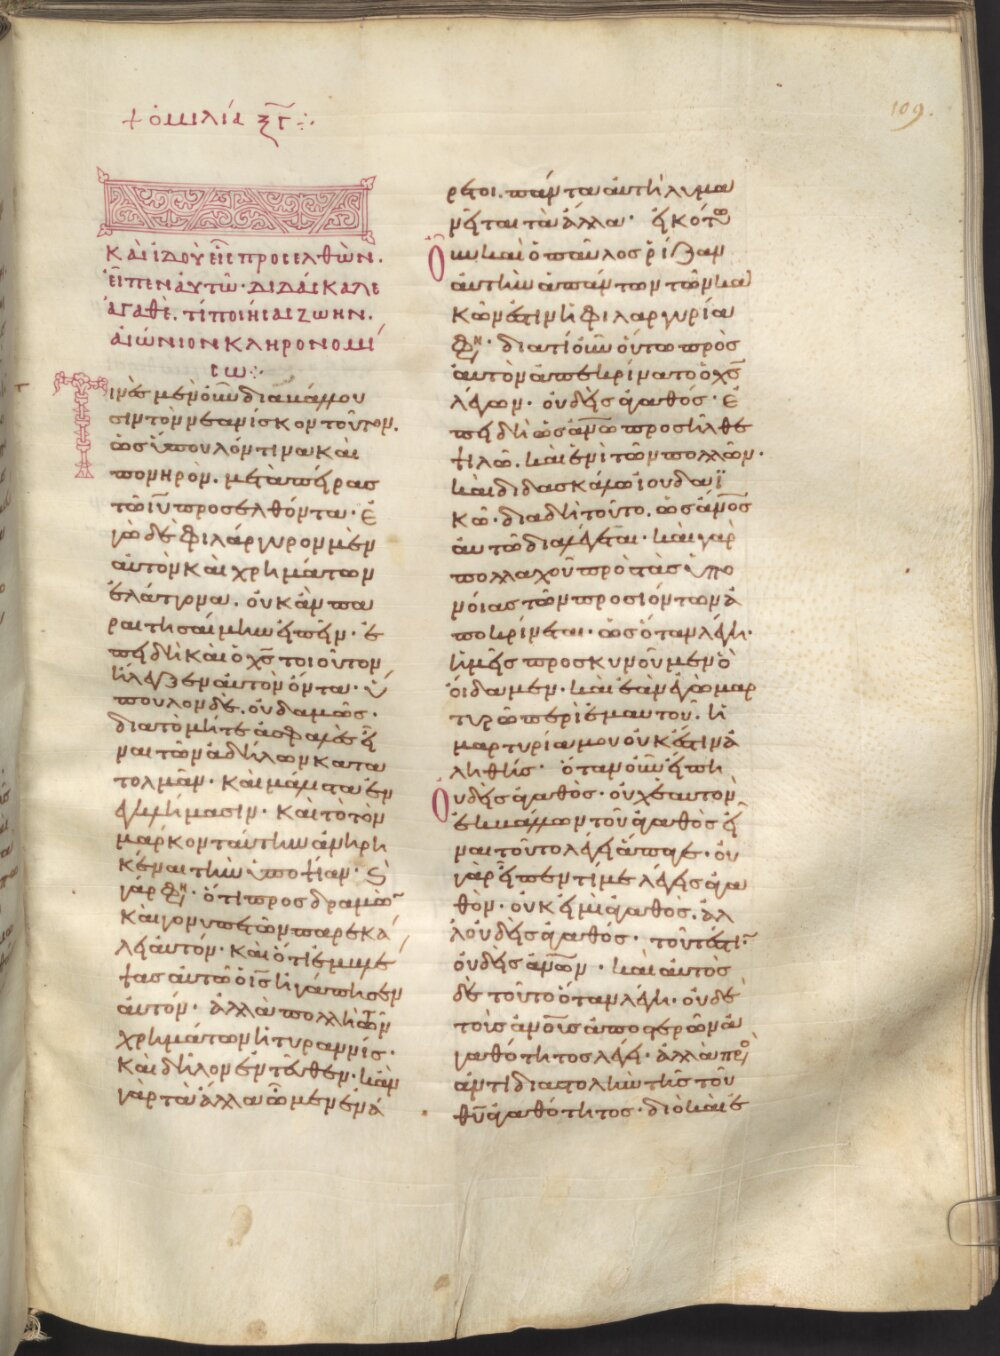 + ὁμιλία ξγ ⁘
109.
καὶ ἰδοὺ εἷς προσελθὼν.
εἶπεν αὐτῷ· διδάσκαλε
ἀγαθὲ. τί ποιήσας ζωὴν.
αἰώνιον κληρονομή
σω⁘
Τινὲς μὲν οὖν διαβάλλου
σιν τὸν νεανίσκον τοῦτον.
ὡς ὕπουλόν τινα καὶ
πονηρὸν. μετὰ πείρας
τῶ ιυ προσελθόντα· ἐ
γὼ δὲ φιλάργυρον μὲν
αὐτὸν καὶ χρημάτων
ἐλάττονα. οὐκ ἂν πα
ραιτησαίμην εἰπεῖν· ἐ
πειδὴ καὶ ὁ χς τοιοῦτον
ἤλεγξεν αὐτὸν ὄντα· ὕ
πουλον δὲ. οὐδαμῶς·
διὰ τὸ μήτε ἀσφαλὲς εἶ
ναι τῶν ἀδήλων κατα
τολμᾶν· καὶ μάλιστα ἐν
ἐγκλήμασιν· καὶ τὸ τὸν
μάρκον ταύτην ἀνηρη
κέναι τὴν ὑποψίαν· καὶ
γάρ φη· ὅτι προσδραμὼν
καὶ γονυπετῶν παρεκά
λει αὐτόν· καὶ ὅτι ἐμβλέ
ψας αὐτῶ ὁ ις ἠγάπησεν
αὐτόν· ἀλλὰ πολλὴ τῶν
χρημάτων ἡ τυραννίς·
καὶ δῆλον ἐντεῦθεν· κἂν
γὰρ τὰ ἄλλα ὦμεν ἐνά
ρετοι. πάντα αὕτη λυμα
νεῖται τὰ ἄλλα· εἰκότως
οὖν καὶ ὁ παῦλος ῥίζαν
αὐτὴν ἁπάντων τῶν κα
κῶν ἐστιν ἡ φιλαργυρία
φη· διατί οὖν οὕτω πρὸς
αὐτὸν ἀπεκρίνατο ὁ χς
λέγων· οὐδεὶς ἀγαθός· ἐ
πειδὴ ὡς ἀνω προσῆλθε
ψιλῶ. καὶ ἑνὶ τῶν πολλῶν·
καὶ διδασκάλω ἰουδαϊ
κῶ· διὰ δὴ τοῦτο. ὡς ἀνος
αὐτῶ διαλέγεται· καὶ γὰρ
πολλαχοῦ πρὸς τὰς ὑπο
νοίας τῶν προσιόντων ἀ
ποκρίνεται· ὡς ὅταν λέγη·
ἡμεῖς προσκυνοῦμεν ὃ
οἴδαμεν· καὶ ἐὰν ἐγὼ μαρ
τυρῶ περὶ ἐμαυτοῦ. ἡ
μαρτυρία μου οὐκ ἔστιν ἀ
ληθής· ὅταν οὖν εἴπη
οὐδεὶς ἀγαθὸς· οὐχ ἑαυτὸν
ἐκβάλλων τοῦ ἀγαθὸς εἶ
ναι τοῦτο λέγει ἄπαγε· οὐ
γὰρ εἶπεν τί με λέγεις ἀγα
θὸν. οὐκ εἰμὶ ἀγαθὸς. ἀλ
λ᾽ οὐδεὶς ἀγαθός· τουτέστιν
οὐδεὶς ἀνων· καὶ αὐτὸς
δὲ τοῦτο ὅταν λέγη· οὐδὲ
τοὺς ἀνους ἀποστερῶν ἀ
γαθότητος λέγει· ἀλλὰ πρὸς
ἀντιδιαστολὴν τῆς τοῦ
θυ ἀγαθότητος· διὸ καὶ ἐ